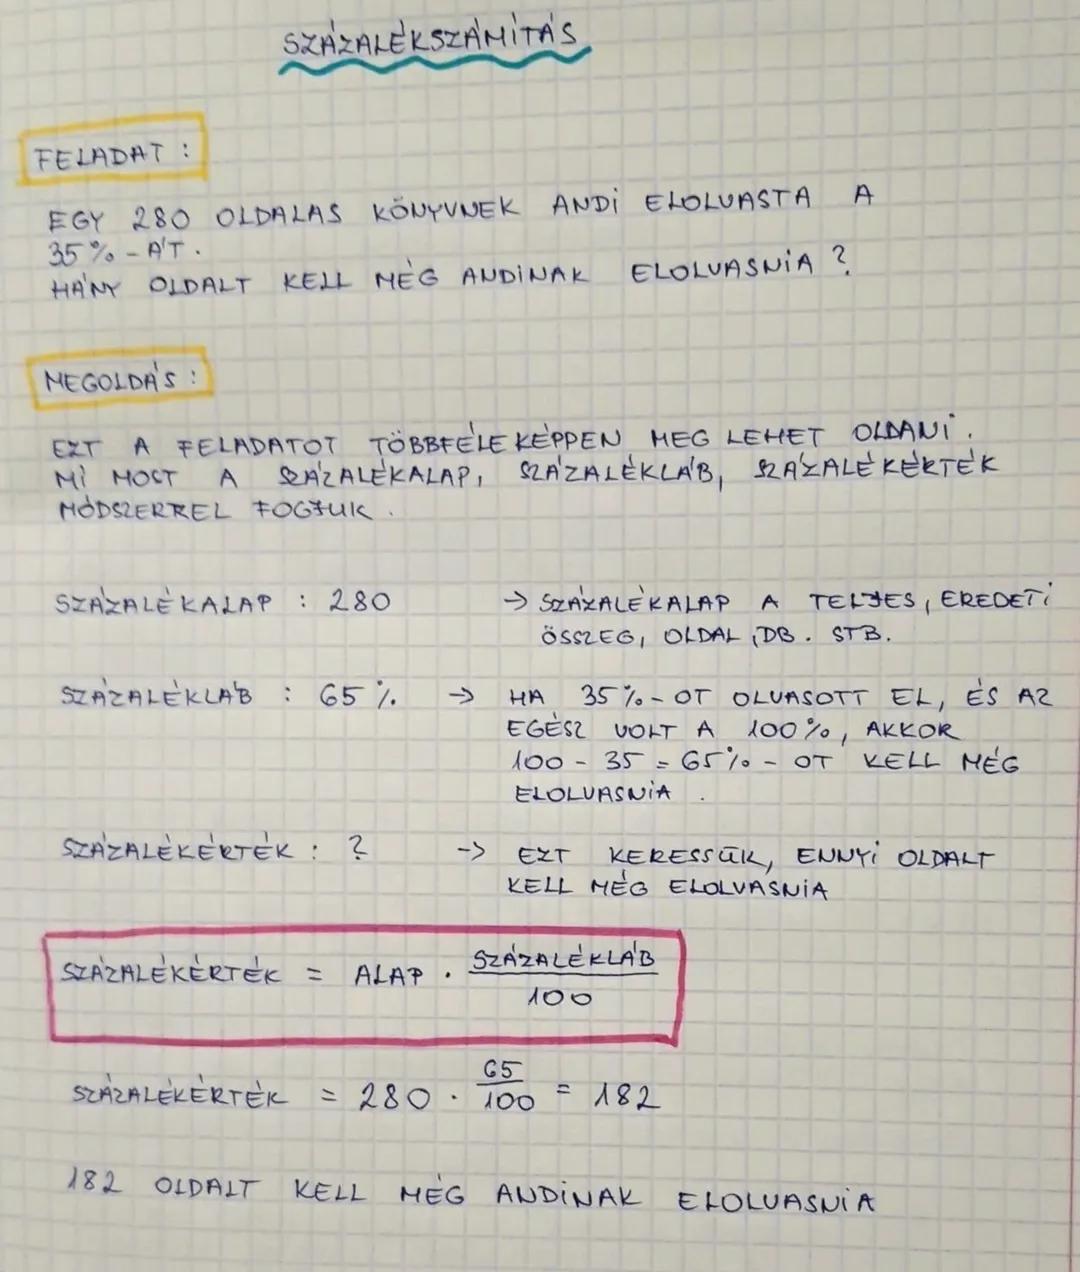 SZÁZALÉKSZÁMÍTÁS
FELADAT :
EGY 280 OLDALAS KÖNYVNEK ANDI ELOLVASTA A
35% - ÁT.
HÁNY OLDALT KELL MÉG ANDINAK ELOLVASNIA ?
MEGOLDÁS :
EZT A FELADATOT TÖBBFÉLEKÉPPEN MEG LEHET OLDANI.
MI MOST A SZÁZALÉKALAP, SZÁZALÉKLÁB, SZÁZALÉKÉRTÉK
MÓDSZERREL FOGJUK.
SZÁZALÉKALAP : 280 → SZÁZALÉKALAP A TELJES, EREDETI
ÖSSZEG, OLDAL, DB. STB.
SZÁZALÉKLÁB : 65% → HA 35%-OT OLVASOTT EL, ÉS AZ
EGÉSZ VOLT A 100%, AKKOR
100 - 35 = 65% - OT KELL MÉG
ELOLVASNIA.
SZÁZALÉKÉRTÉK : ? → EZT KERESSÜK, ENNYI OLDALT
KELL MÉG ELOLVASNIA
SZÁZALÉKÉRTÉK = ALAP · SZÁZALÉKLÁB
100
SZÁZALÉKÉRTÉK = 280 · 65/100 = 182
182 OLDALT KELL MÉG ANDINAK ELOLVASNIA